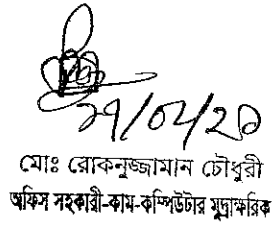 মোঃ রোকনুজ্জামান চৌধুরী
অফিস সহকারী-কাম-কম্পিউটার মুদ্রাক্ষরিক